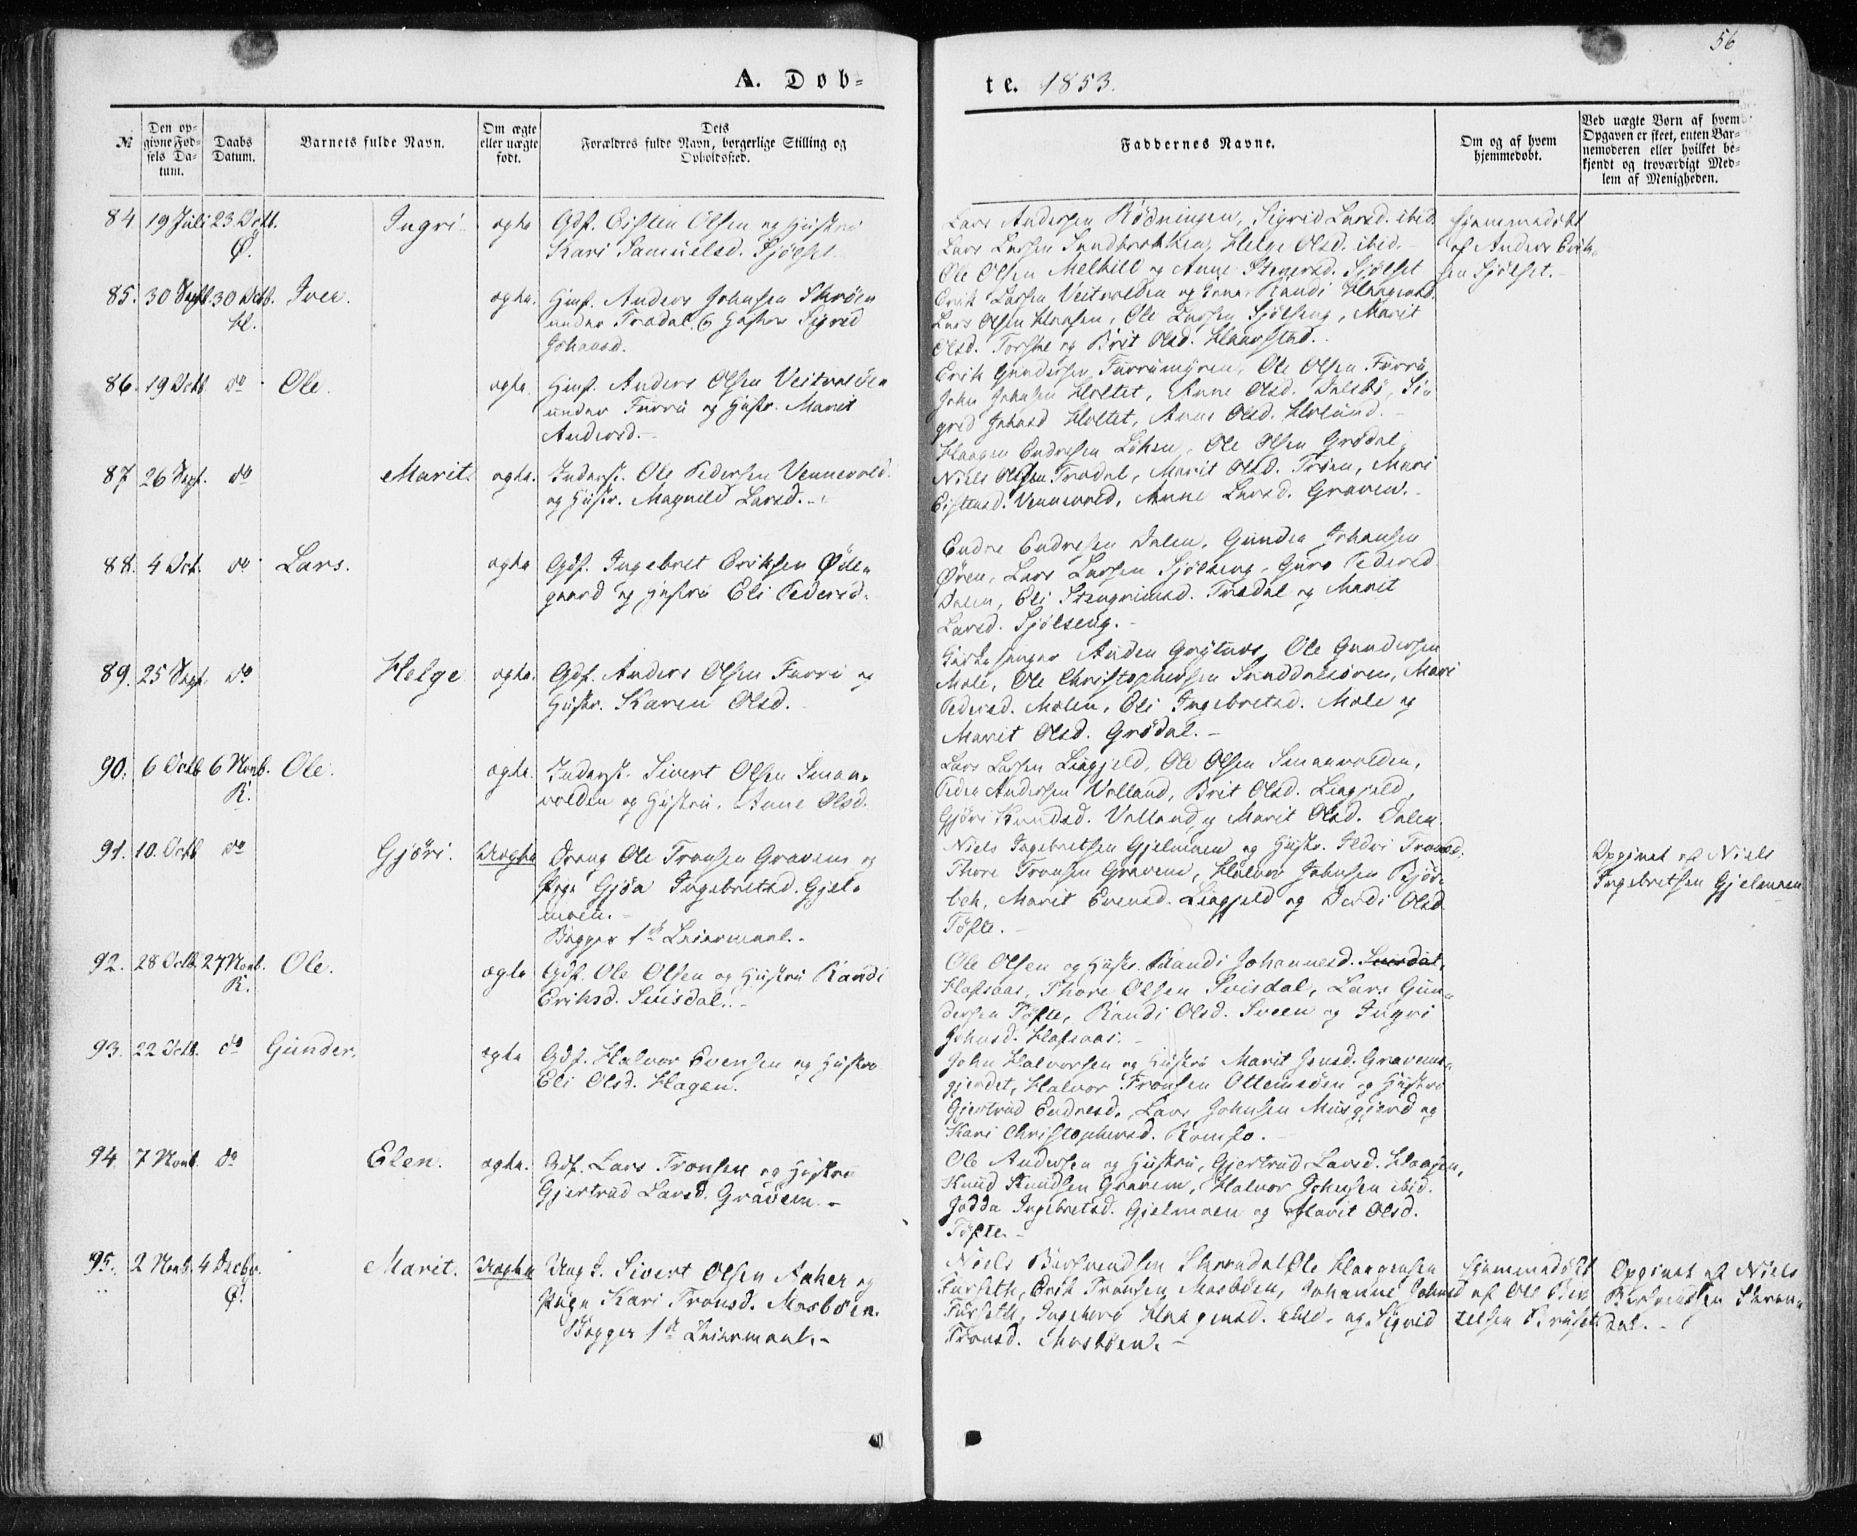 56
A. Døb-
te. 1853.
№
Den op-
givne Fød-
sels Da-
tum.
Daabs
Datum.
Barnets fulde Navn.
Om ægte
eller uægte
født.
Dets
Forældres fulde Navn, borgerlige Stilling og
Opholdssted.
Faddernes Navne.
Om og af hvem
hjemmedøbt.
Ved uægte Børn af hvem
Opgaven er skeet, enten Bar-
nemoderen eller hvilket be-
kjendt og troværdigt Med-
lem af Menigheden.
84 19 Juli 23 Octb. Ø. Ingri ægte
Gdf. Eisten Olsen og Hustru
Kari Samuelsd. Sjølset
Lars Andersen Rødningen, Sigrid Larsd. ibid.
Lars Larsen Sandbrekken, Helge Olsd. ibid.
Ole Olsen Melhill og Anne Iversd. Sjølset
Hjemmedøbt
af Anders Erik-
sen Sjølset.
85. 30 Sept. 30 Octb. H. Iver. ægte.
Husf. Anders Johnsen Skrøen
under Trædal og Hustru Sigrid
Johansd.
Erik Larsen Veitvolden og Kone Randi Haagensd.
Lars Olsen Haasen, Ole Larsen Sjølseng, Marit
Olsd. Torske og Brit Olsd. Haarstad.
86. 19 Octb do Ole. ægte.
Husf. Anders Olsen Veitvolden
under Furru og Hustr. Marit
Andersd.
Erik Gundersen Furrumyren, Ole Olsen Furru,
John Johnsen Holtet, Anne Olsd. Dalebø, Si-
grid Johnsd Holtet, Anne Olsd. Holund.
87 26 Sept. do Marit. ægte.
Inderst. Ole Pedersen Vennevold
og Hustr. Magnild Larsd.
Haagen Endresen Løken, Ole Olsen Grødal,
Niels Olsen Trædal, Marit Olsd. Trøen, Mari
Eistensd. Vennevold, Anne Larsd. Graven.
88. 4 Oct. do Lars. ægte
Gdf. Ingebret Eriksen Øde-
gaard og Hustru Eli Pedersd.
Endre Endresen Dalen, Gunder Johansen
Øren, Lars Larsen Sjølseng, Guro Pedersd
Dalen, Eli Stengrimsd. Trædal og Marit
Larsd. Sjølseng.
89. 25 Sept. do Helge ægte.
Gdf. Anders Olsen Furru og
Hustr. Karen Olsd.
Kirkesanger Anden Grytnes, Ole Gundersen
Mæle, Ole Christophersen Sunddalsøren, Mari
Pedersd. Molen, Eli Ingebretsd. Mæle og
Marit Olsd. Grødal.
90. 6 Octb 6 Novb. R. Ole. ægte.
Inderst. Sivert Olsen Smaa-
volden og Hustru, Anne Olsd.
Lars Larsen Liagjeld, Ole Olsen Smaavolden,
Peder Andersen Volland, Brit Olsd. Liagjeld,
Gjøri Knudsd. Volland og Marit Olsd. Dalen.
91. 10. Octb do Gjøri. Uægte
Dreng Ole Tronsen Gravem og
Pige Gjøa Ingebretsd. Gjel-
moen.
Begges 1ste Leiermaal.
Niels Ingebretsen Gjelmoen og Hustr. Ildri Tronsd.
Thore Tronsen Gravem, Halvor Johnsen Bjør-
bek, Marit Evensd. Liagjeld og Dordi Olsd
Tøfte.
Opgivet af Niels
Ingebretsen Gjelmoen
92. 28 Octb 27 Novb. R. Ole. ægte
Gdf. Ole Olsen og Hustru Randi
Eriksd. Svisdal.
Ole Olsen og Hustr. Randi Johannesd. Svisdal,
Hafsaas, Thore Olsen Svisdal, Lars Gun-
dersen Tøfte, Randi Olsd. Sveen og Ingri
Johnsd. Hafsaas.
93. 22 Octb. do Gunder. ægte
Gdf. Halvor Evensen og Hustru
Eli Olsd. Hagen.
John Halvorsen og Hustru Marit Jonsd. Gravems-
gjerdet, Halvor Tronsen Ottemsøen og Hustru
Gjertrud Endresd. Lars Johnsen Musgjerd og
Kari Christophersd. Romfo.
94 7 Novb. do Elen. ægte.
Gdf. Lars Tronsen og Hustru
Gjertrud Larsd. Gravem.
Ole Andersen og Hustru, Gjertrud Larsd. Haasen,
Knud Knudsen Gravem, Halvor Johnsen ibid.
Jødda Ingebretsd. Gjelmoen og Marit Olsd.
Tøfte.
95. 2 Novb. 4 Decbr. Ø. Marit. Uægte
Ung k. Sivert Olsen Aaker og
Pige Kari Tronsd. Mosbøen.
Begges 1ste Leiermaal.
Niels Bersvendsen Skrøndal, Ole Haagensen
Furseth, Erik Tronsen Mosbøen, Johanne Johnsd
Furseth, Ingeborg Haagensd. ibid. og Sigrid
Tronsd. Mosbøen.
Hjemmedøbt
af Ole Ber-
telsen Bruset
Opgivet af Niels
Bersvendsen Skrøn-
dal.